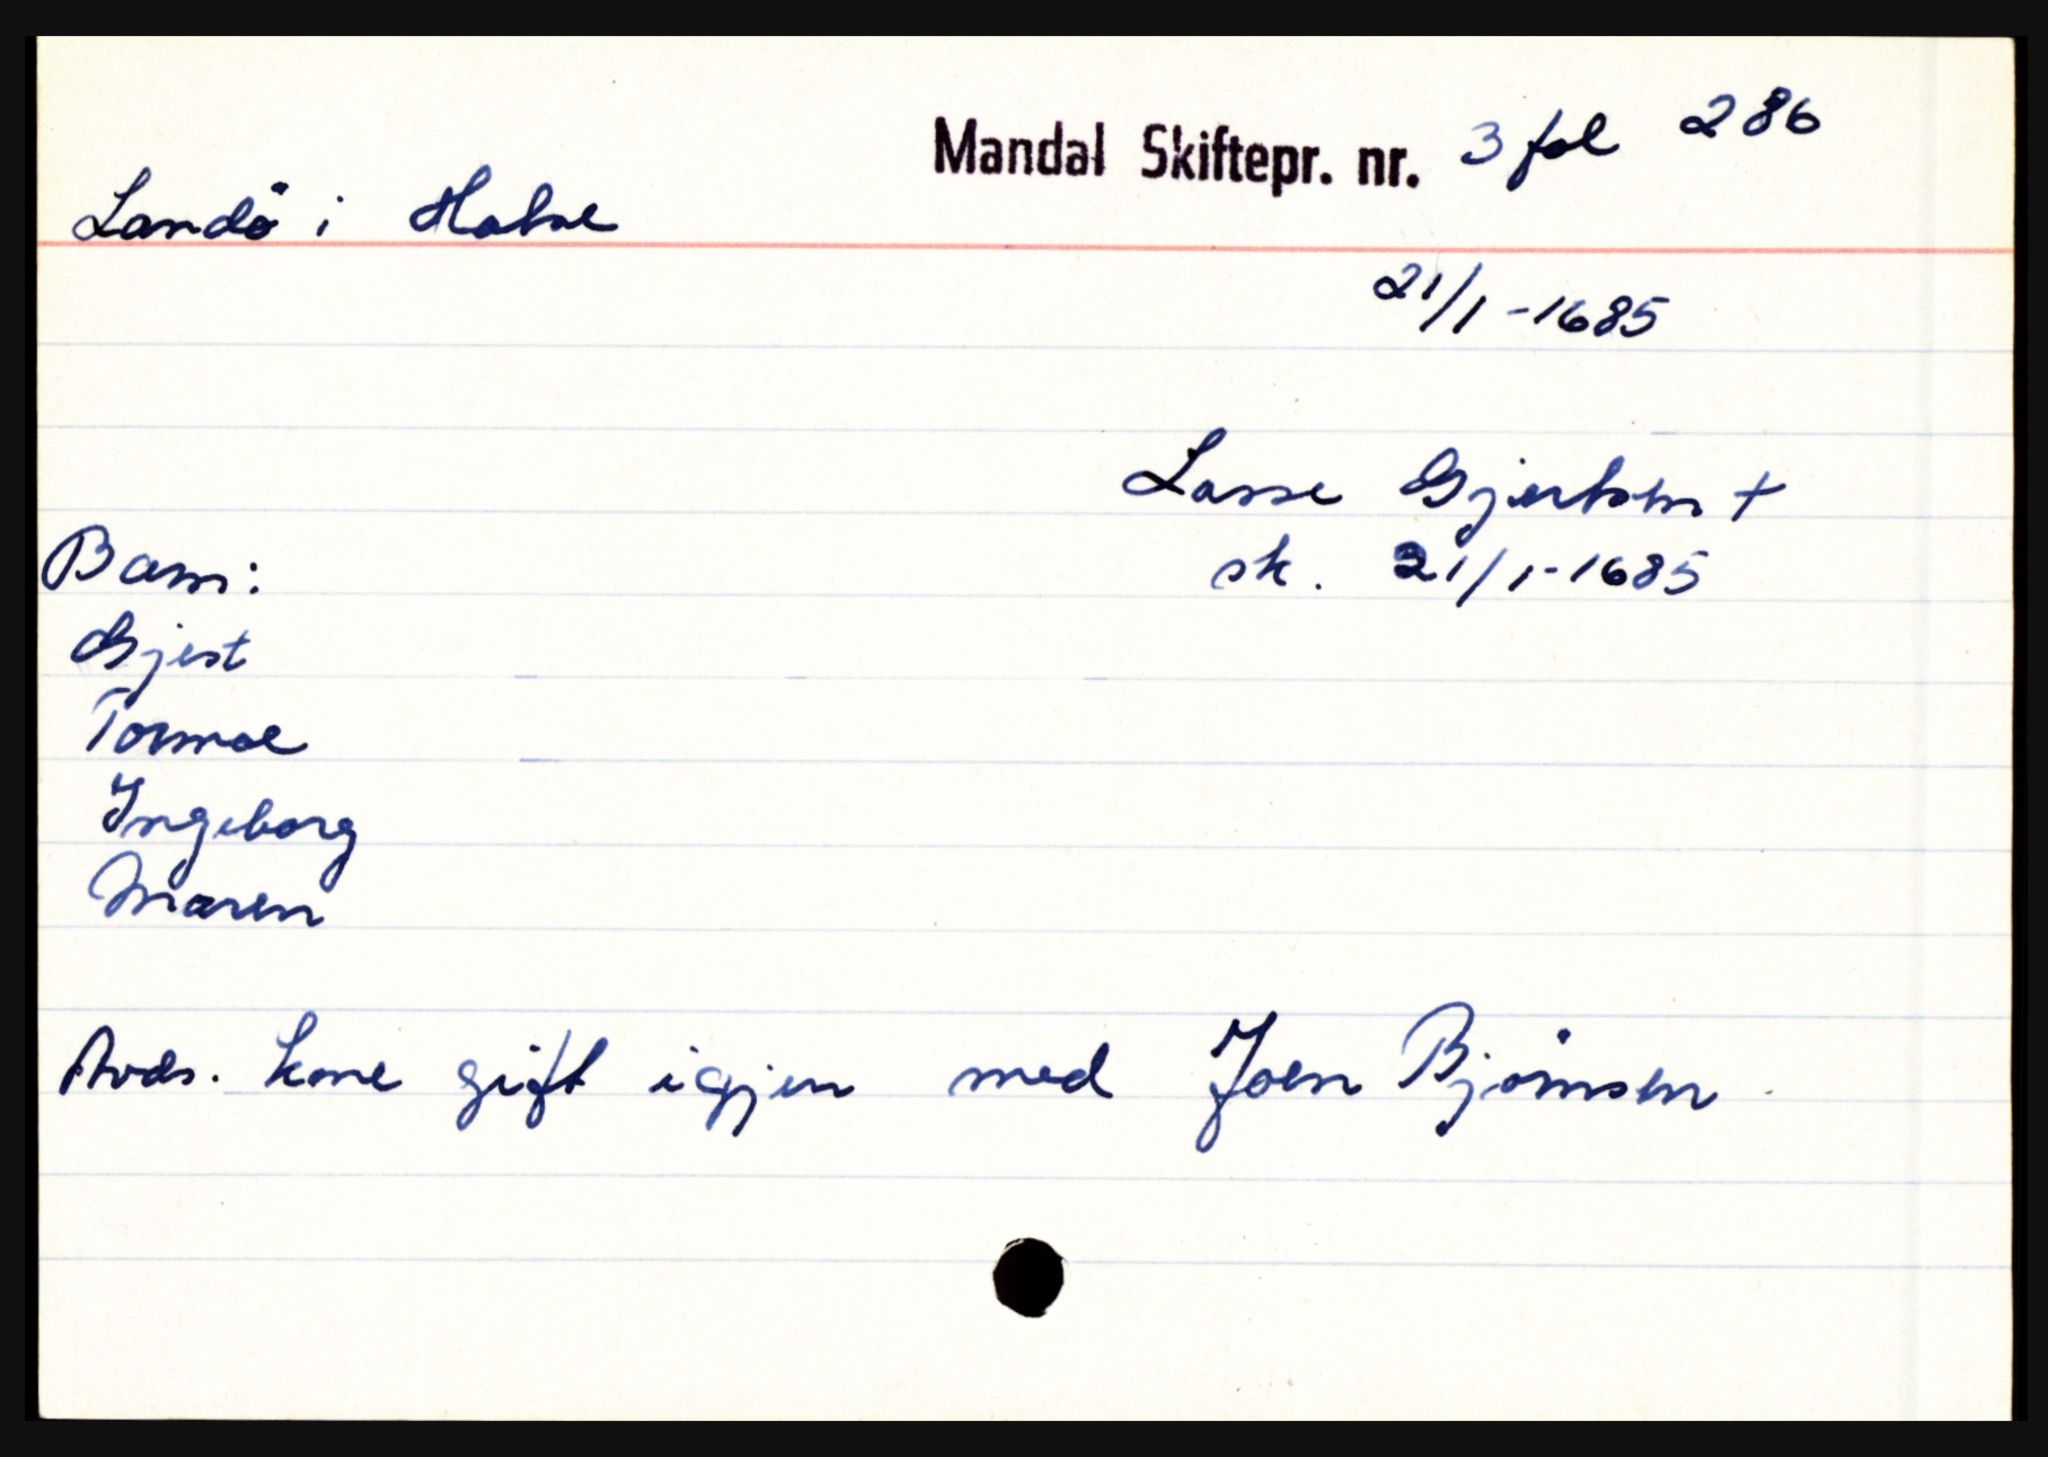 Mandal Skiftepr. nr. 3 fol 286
Landö i Halse
21/1-1685
Lasse Gjertsen +
sk. 21/1-1685
Barn:
Gjest
Tormoe
Ingeborg
Maren
Avds. kone gift igjen med Joen Björnsen